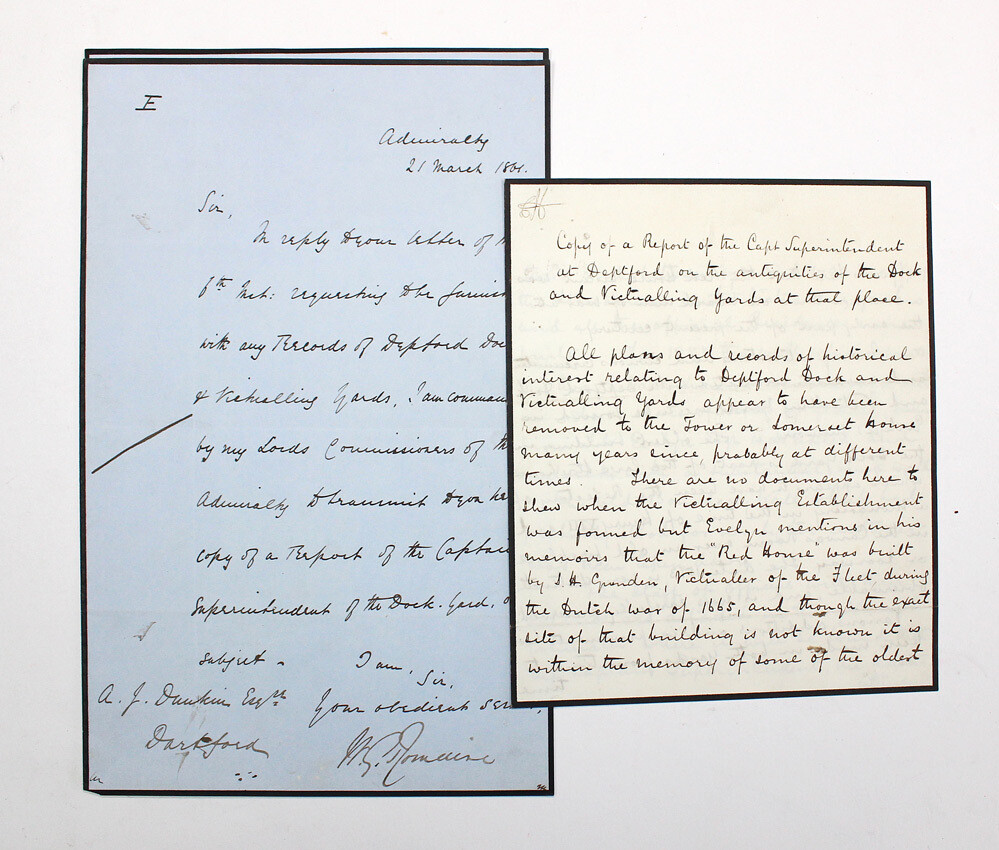 E
Admiralty
21 March 1861.
Sir,
In reply to your letter of
6th Inst: requesting to be furnis
with any Records of Deptford Do
& Victualling Yards, I am comman
by my Lords Commissioners of th
Admiralty to transmit to you he
copy of a Report of the Captai
Superintendent of the Dock-Yard,
subject.
I am,
Sir,
Your obedient ser
W. G. Romaine
A. J. Dunkin Esqre
Dartford
Copy of a Report of the Capt Superintendent
at Deptford on the antiquities of the Dock
and Victualling Yards at that place.
All plans and records of historical
interest relating to Deptford Dock and
Victualling Yards appear to have been
removed to the Tower or Somerset House
many years since, probably at different
times. There are no documents here to
shew when the Victualling Establishment
was formed but Evelyn mentions in his
memoirs that the "Red House" was built
by S. H. Victualler of the Fleet during
the Dutch war of 1665, and though the exact
site of that building is not known it is
within the memory of some of the oldest